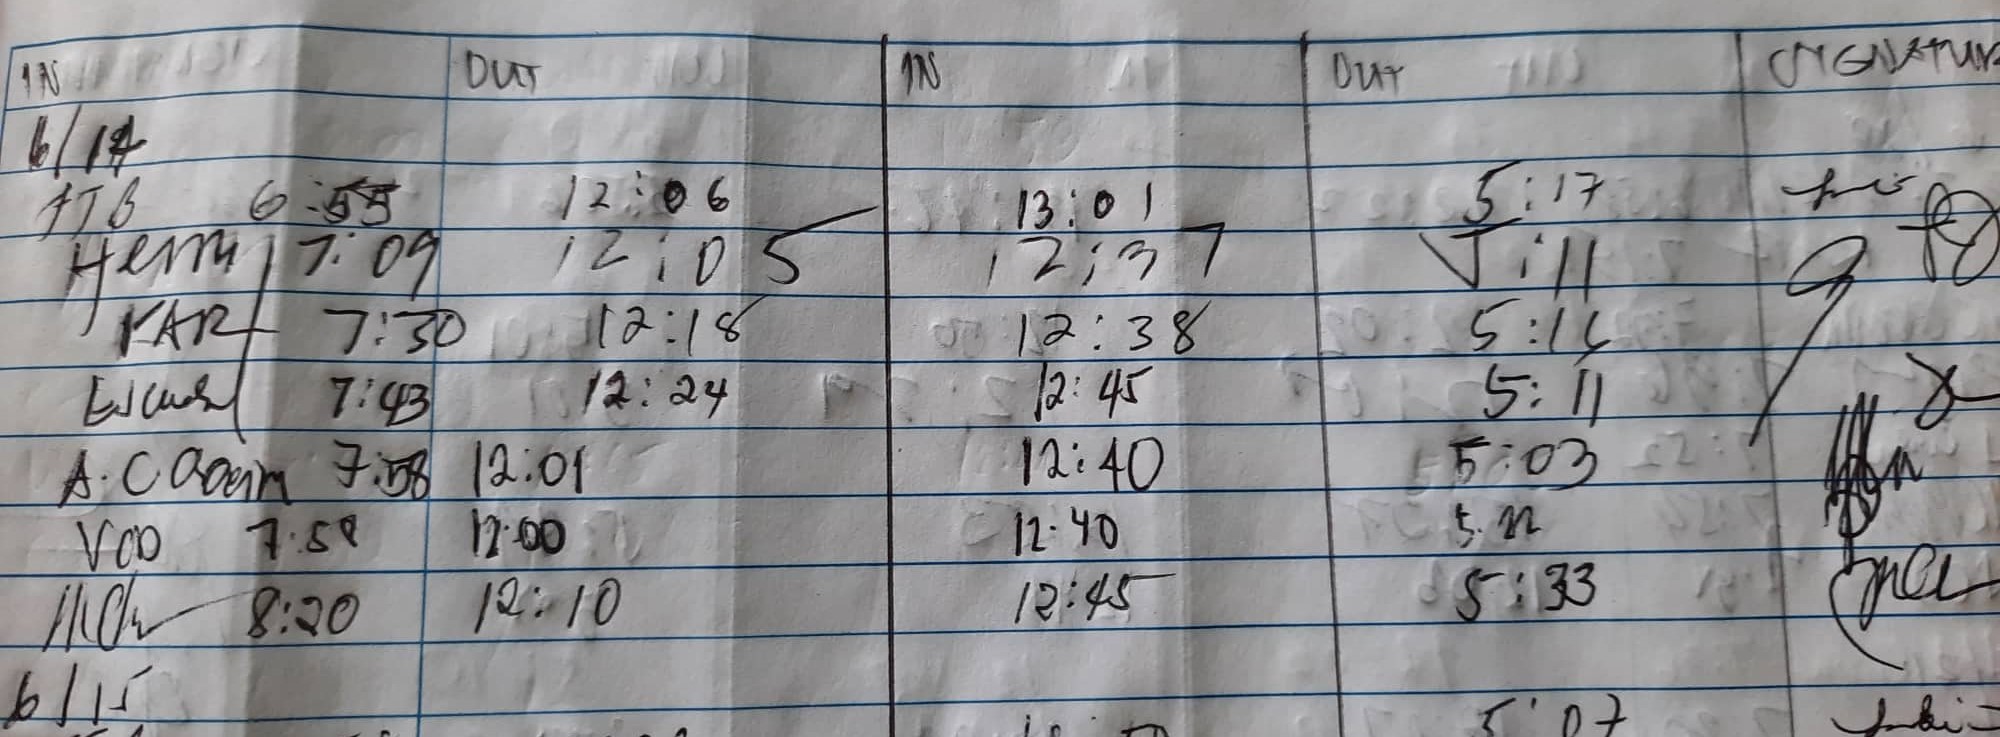 IN OUT IN OUT SIGNATUR
6/14
ATB 6:55 12:06 13:01 5:17
Henry 7:09 12:05 12:37 5:11
KAR 7:30 12:18 12:38 5:16
7:43 12:24 12:45 5:11
A.C 7:58 12:01 12:40 5:03
VCO 7:58 12:00 12:40 5:22
8:20 12:10 12:45 5:33
6/15
5:07